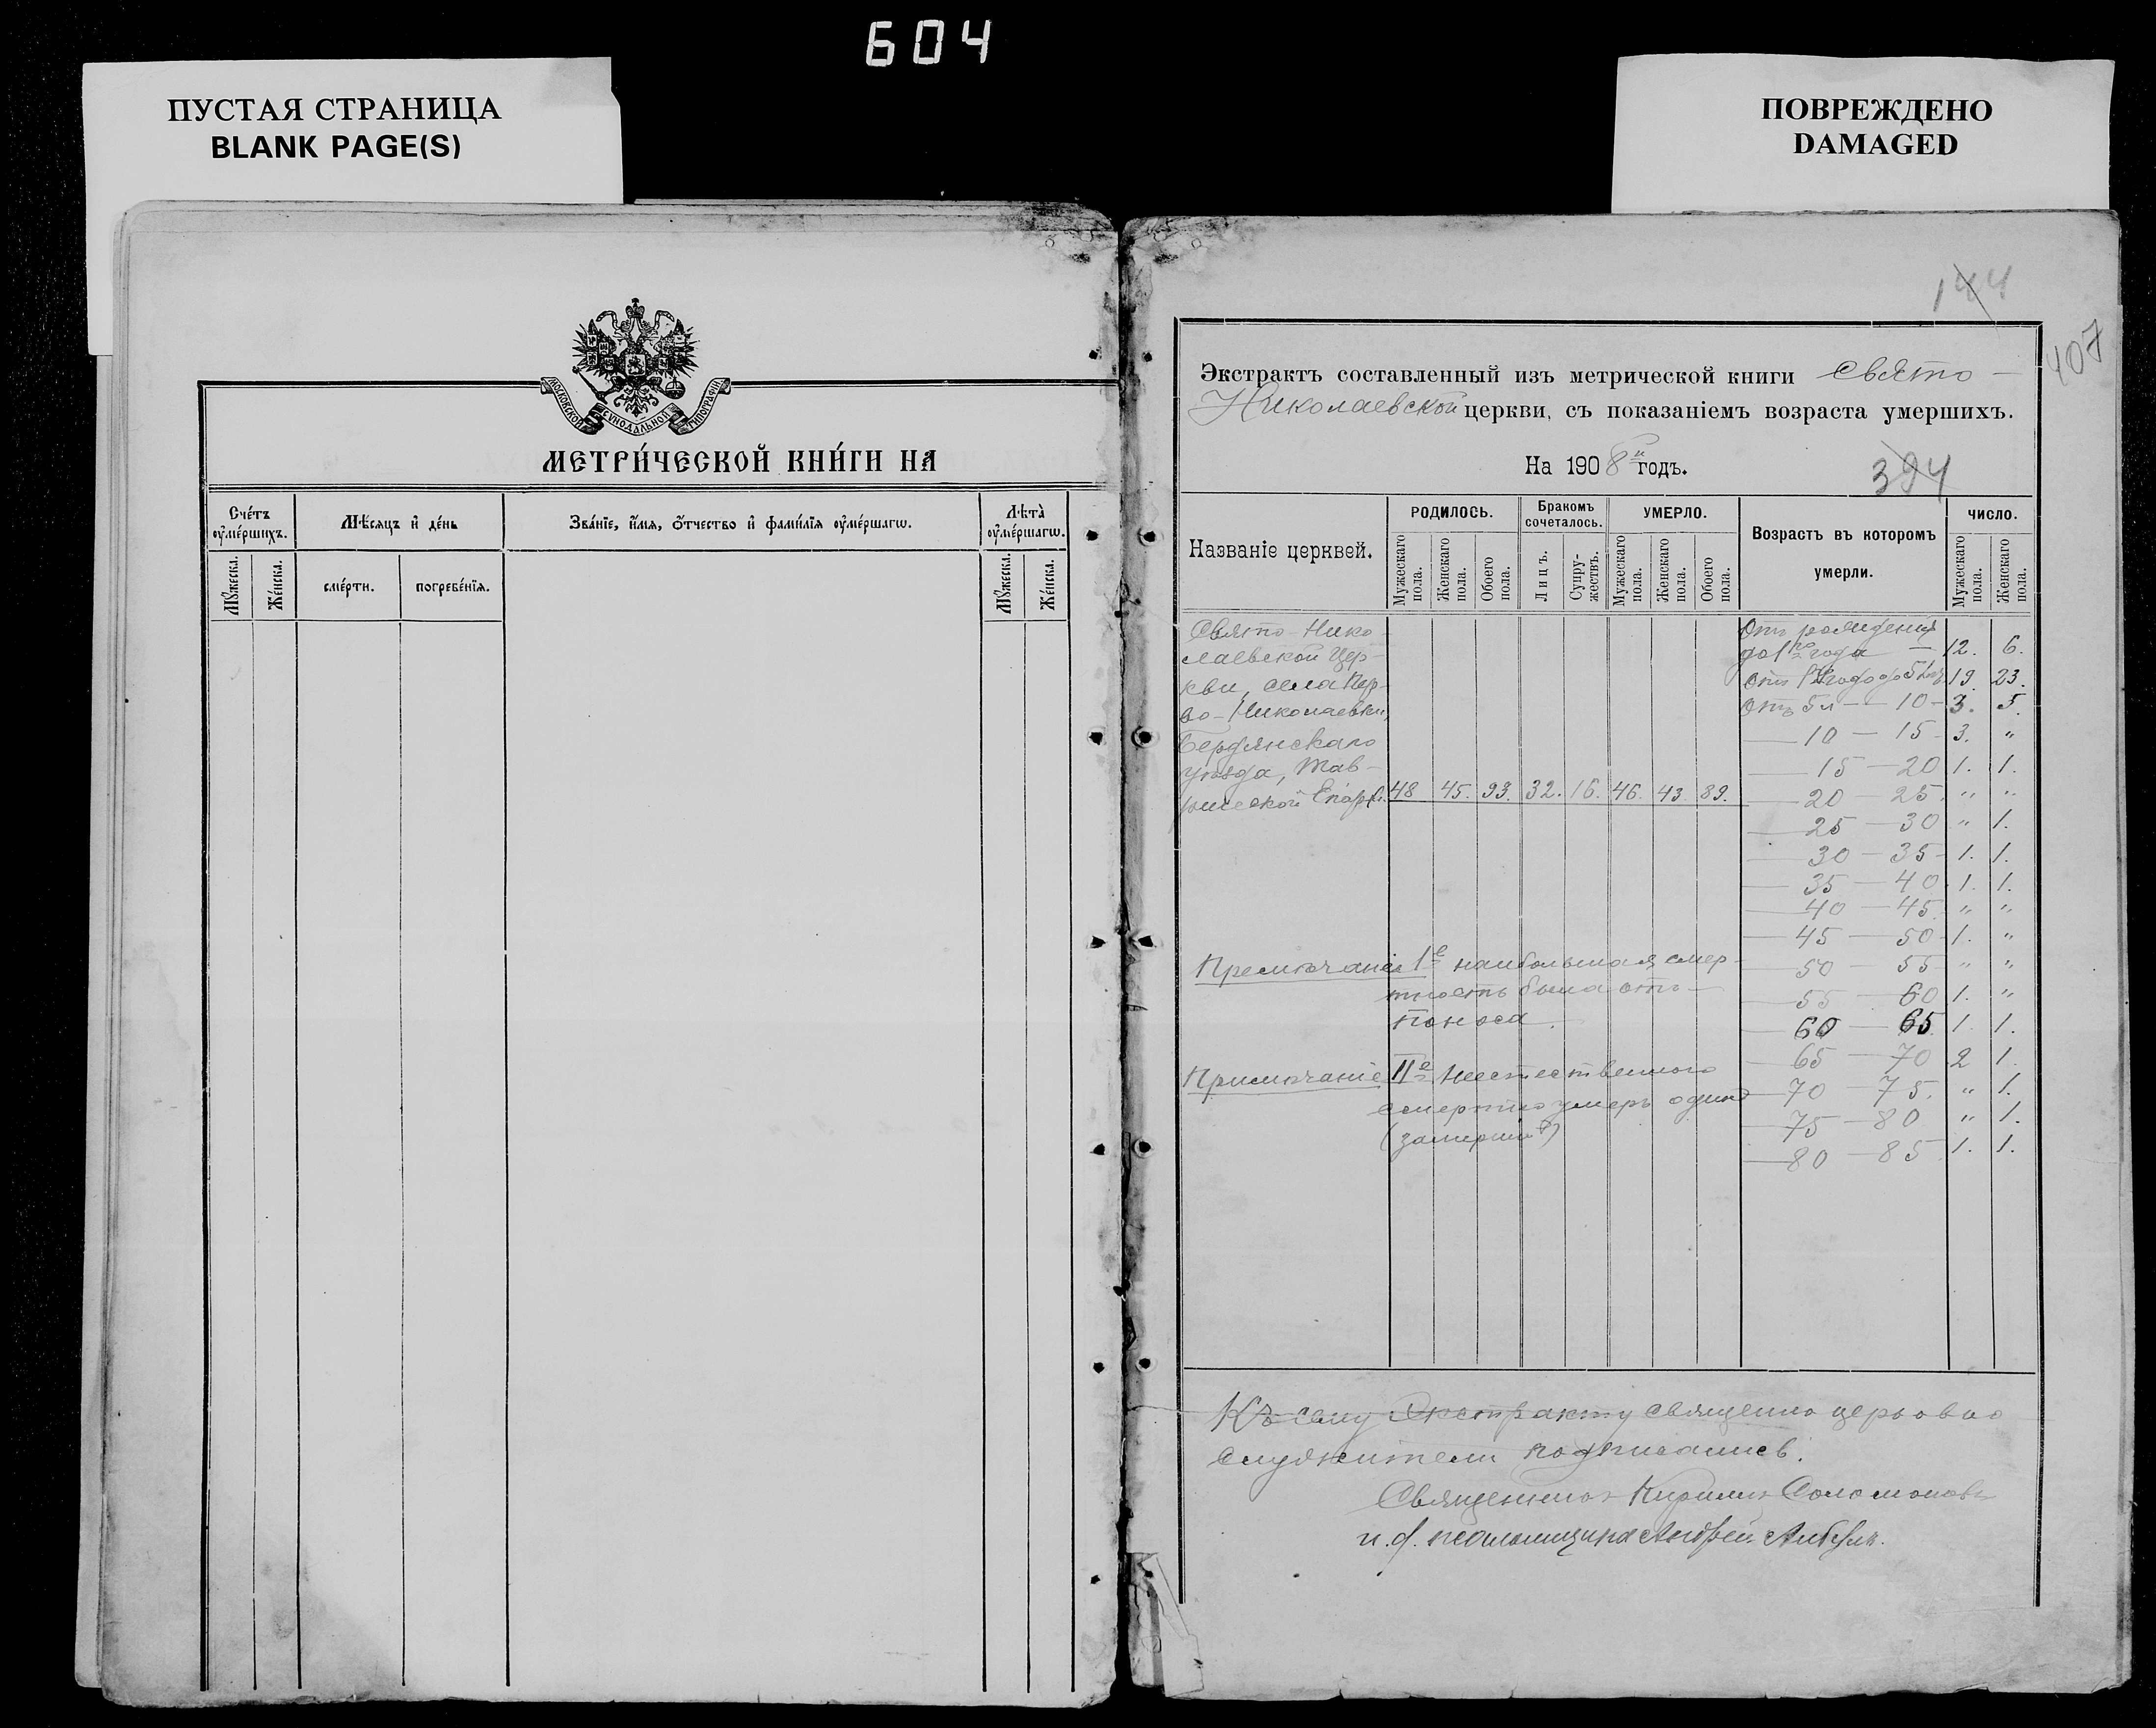 604
ПУСТАЯ СТРАНИЦА
BLANK PAGE(S)
ПОВРЕЖДЕНО
DAMAGED
МОСКОВСКОЙ СѴНОДАЛЬНОЙ ТИПОГРАФІИ
МЕТРИ́ЧЕСКОЙ КНИ́ГИ НА
Сче́тъ оу҆ме́ршихъ.
Мѣ́сяцъ и҆ де́нь
Зва́нїе, и҆́мѧ, ѻ҆́тчество и҆ фами́лїѧ оу҆ме́ршагѡ.
Лѣ́та оу҆ме́ршагѡ.
Мꙋ́жеска.
Же́нска.
сме́рти.
погребе́нїѧ.
Мꙋ́жеска.
Же́нска.
144
407
Экстрактъ составленный изъ метрической книги Свято-
Николаевской церкви, съ показаніемъ возраста умершихъ.
На 1908й годъ.
394
Названіе церквей.
РОДИЛОСЬ.
Бракомъ сочеталось.
УМЕРЛО.
Возрастъ въ которомъ умерли.
ЧИСЛО.
Мужескаго пола.
Женскаго пола.
Обоего пола.
Лицъ.
Супружествъ.
Мужескаго пола.
Женскаго пола.
Обоего пола.
Мужескаго пола.
Женскаго пола.
Свято-Нико-
лаевской Цер-
кви, села Пер-
во-Николаевки,
Бердянскаго
уѣзда, Тав-
рической Епархіи. 48 45. 93. 32. 16. 46. 43. 89.
Отъ рожденія
до 1го года — 12. 6.
Отъ 1 года до 5 19. 23.
Отъ 5 л — 10 — 3. 5.
— 10 — 15 — 3. "
— 15 — 20 1. 1.
— 20 — 25. " "
— 25 — 30 " 1.
— 30 — 35 — 1. 1.
— 35 — 40 — 1. 1.
— 40 — 45. " "
— 45 — 50 — 1. "
— 50 — 55 " "
— 55 — 60 1. "
— 60 — 65 1. 1.
— 65 — 70 2 1.
— 70 — 75. " 1.
— 75 — 80 " 1.
— 80 — 85. 1. 1.
Примѣчаніе 1е наибольшая смер-
тность была отъ
поноса.
Примѣчаніе IIе Неестественною
смертію умеръ одинъ
Къ сему Экстракту священно церковно
служители подписались:
Священникъ Кириллъ Соломоновъ
и. д. псаломщика Андрей